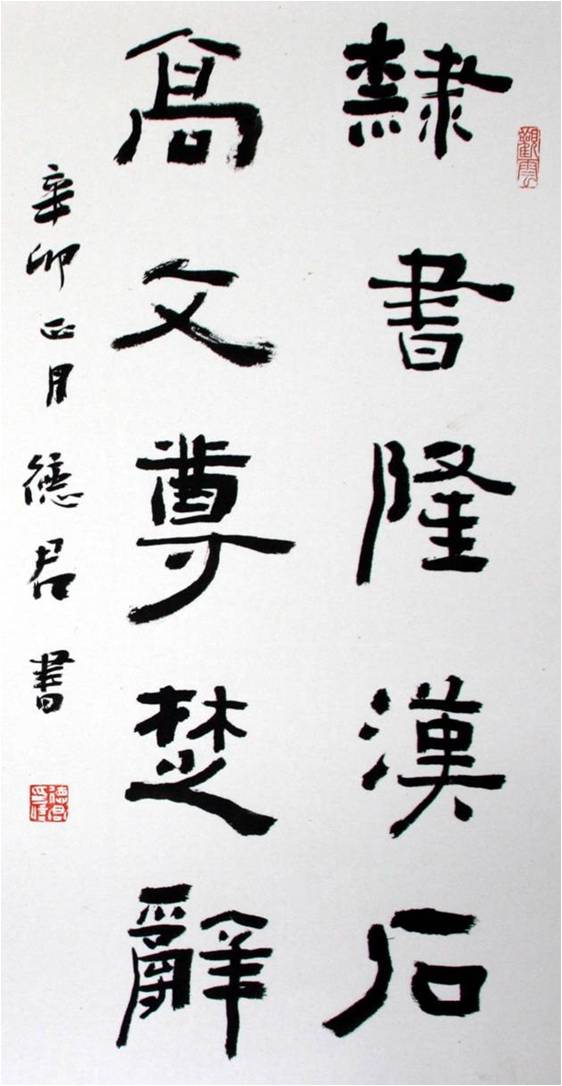 隸書隆漢石
高文尊楚辭
辛卯正月德君書
觀雲